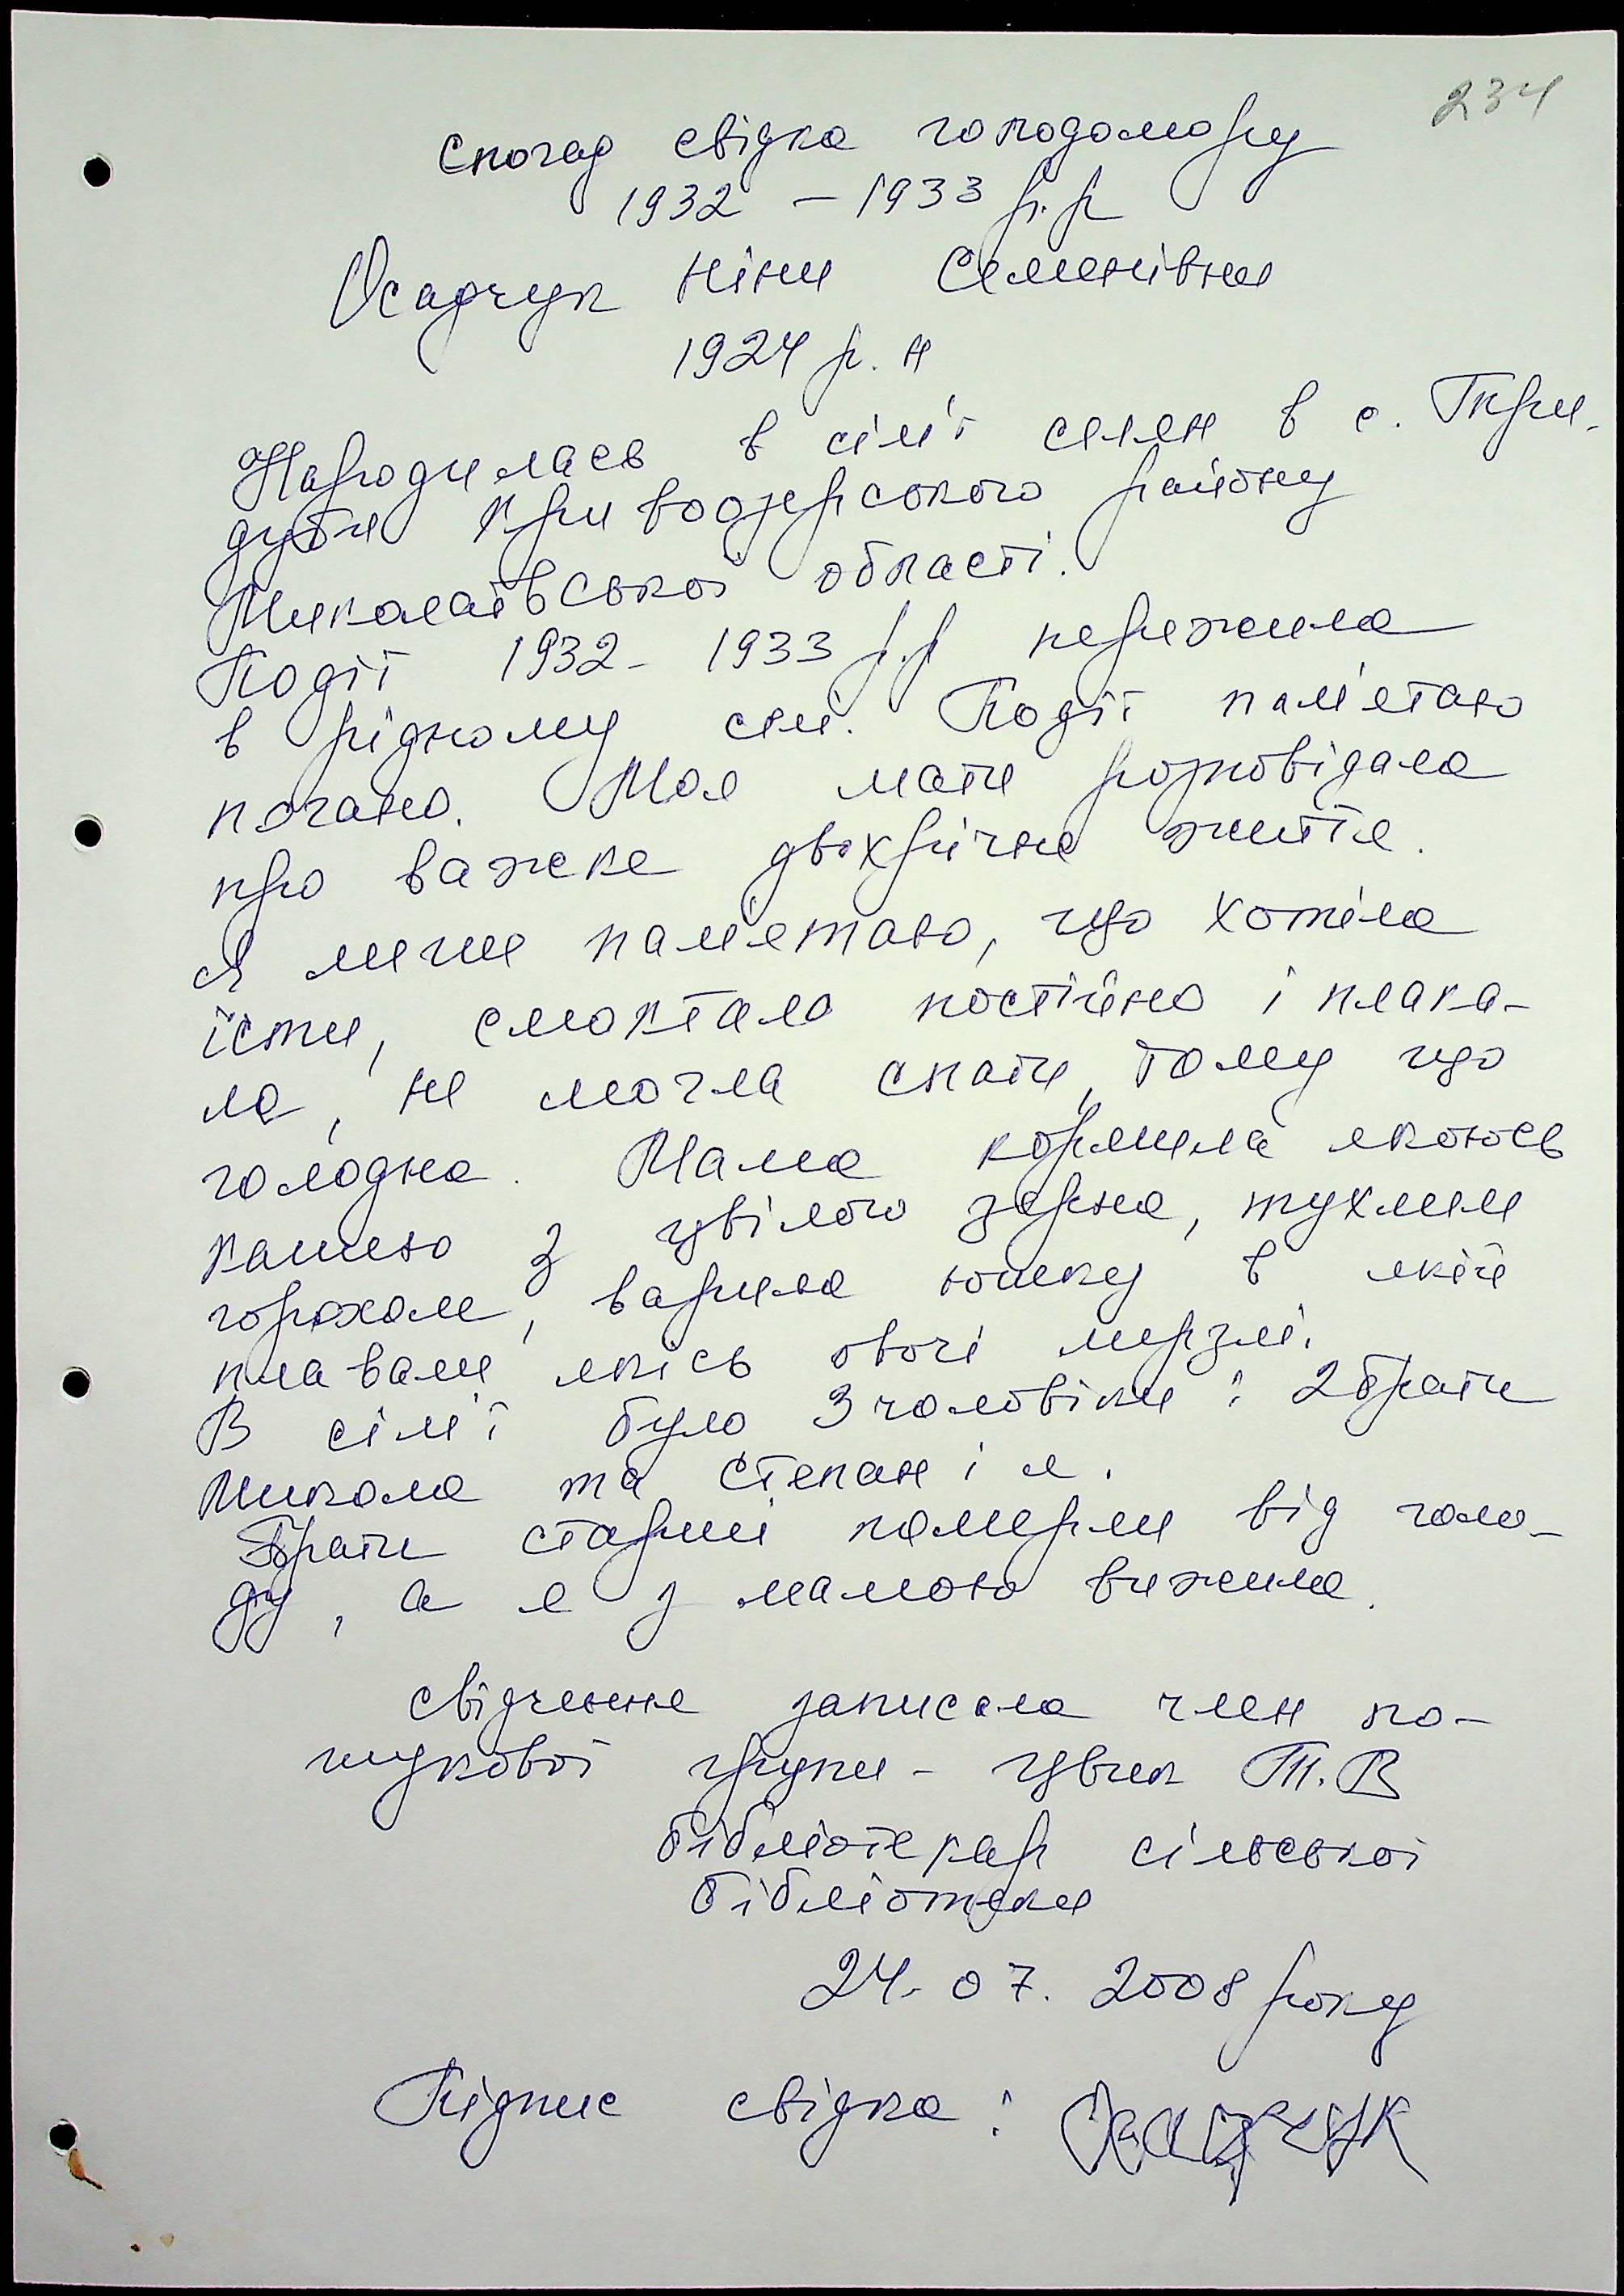 234
Спогад свідка голодомору
1932 – 1933 р.р
Осадчук Ніни Семенівни
1924 р. н
Народилась в сім'ї селян в с.
Кривоозерського району
Миколаївської області.
Події 1932 - 1933 р.р пережила
в рідному селі. Події пам'ятаю
погано. Моя мати розповідала
про важке двохрічне життя.
Я лише пам'ятаю, що хотіла
їсти, смоктало постійно і плака-
ла, не могла спати, тому що
голодна. Мама кормила якоюсь
кашею з цвілого зерна, тухлим
горохом, варила юшку в якій
плавали якісь овочі мерзлі.
В сім'ї було 3 чоловіки: 2 брати
Микола та Степан і я.
Брати старші померли від голо-
ду, а я з мамою вижила.
Свідчення записала член по-
шукової групи - Цвик Т.В
бібліотекар сільської
бібліотеки
24. 07. 2008 року
Підпис свідка: Осадчук